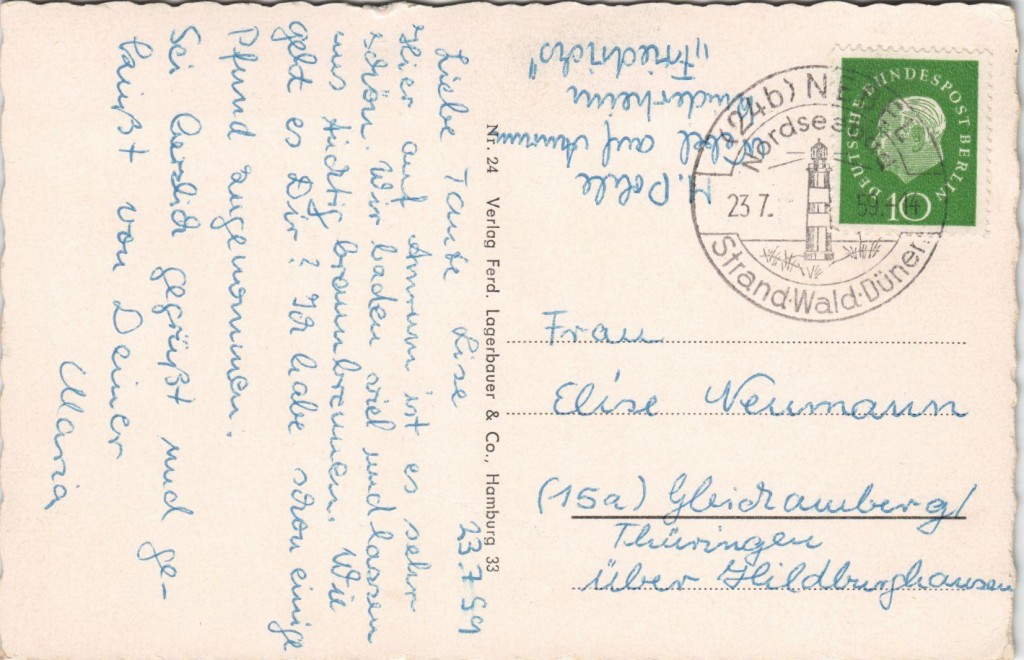 23.7.59
Liebe Tante Lise
Hier auf Amrum ist es sehr
schön. Wir baden viel und lassen
uns tüchtig braunbrennen. Wie
geht es Dir? Ich habe schon einige
Pfund zugenommen.
Sei herzlich gegrüßt und ge-
küßt von Deiner
Maria
Nr. 24 Verlag Ferd. Lagerbauer & Co., Hamburg 33
Nebel auf Amrum
Kinderheim
„Friedrichs"
(24b) NEBEL
Nordseebad
23.7.59.-14
Strand·Wald·Dünen
DEUTSCHE BUNDESPOST BERLIN
10
Frau
Elise Neumann
(15a) Gleichamberg/
Thüringen
über Hildburghausen